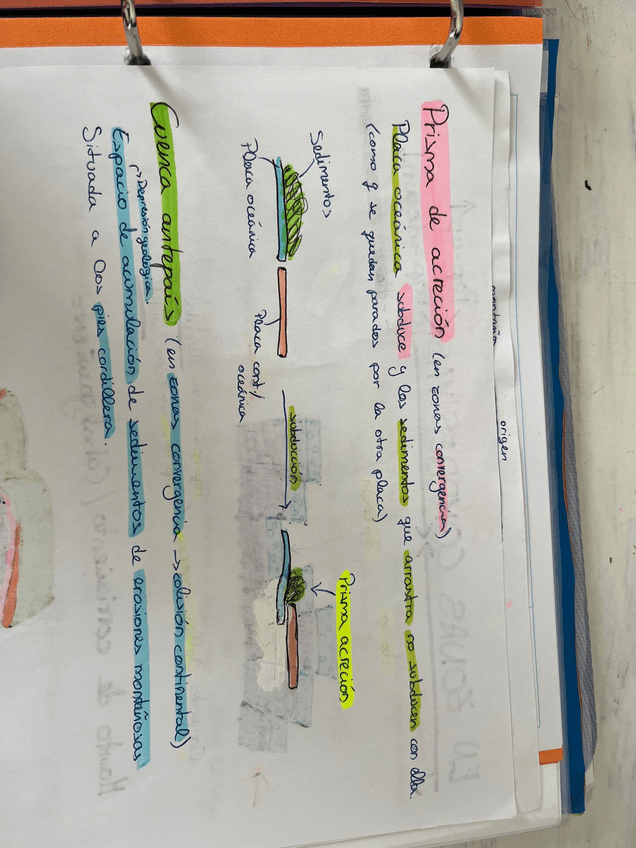 Prisma de acreción (en zonas convergencia)
Placa oceánica subduce y los sedimentos que arrastra no subducen con ella.
(como q se quedan parados por la otra placa)
Sedimentos
Placa oceánica
Placa cont/
oceánica
subducción
Prisma acreción
Cuenca antepaís (en zonas convergencia → colisión continental)
↱ Depresión geológica
Espacio de acumulación de sedimentos de erosiones montañosas
Situada a los pies cordillera.
montaña
origen